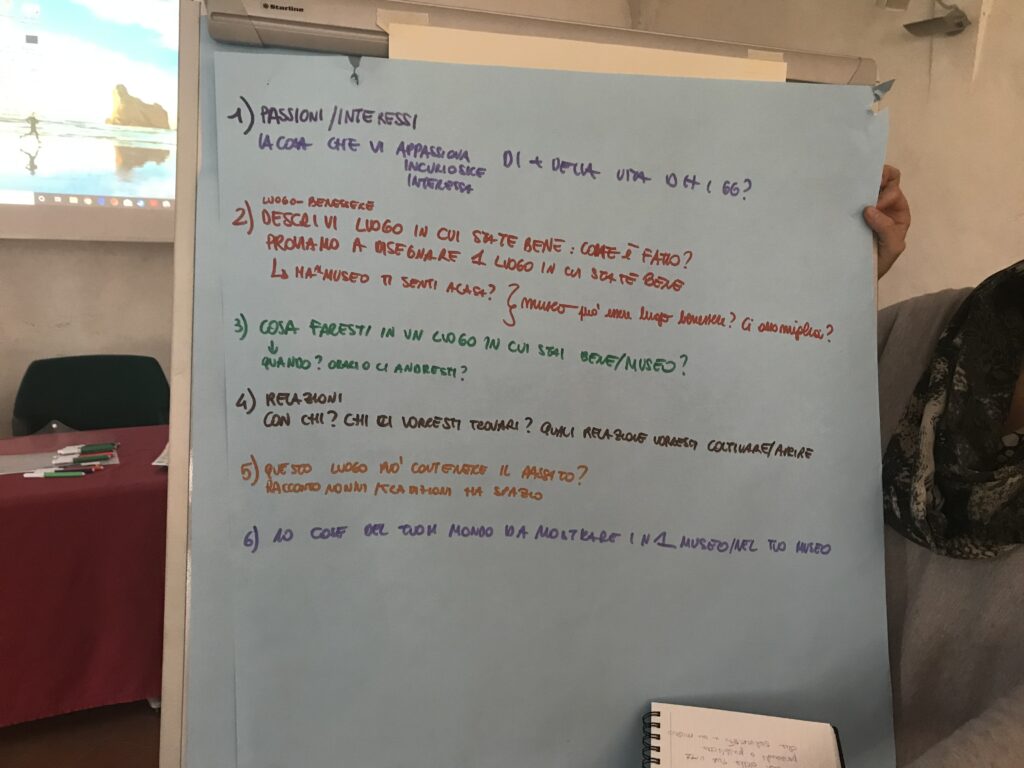 Starline
1) PASSIONI/INTERESSI
LA COSA CHE VI APPASSIONA DI + DELLA VITA DI GG?
INCURIOSISCE
INTERESSA
LUOGO-BENESSERE
2) DESCRIVI LUOGO IN CUI STATE BENE: COME È FATTO?
PROVIAMO A DISEGNARE 1 LUOGO IN CUI STATE BENE
↳ MUSEO TI SENTI A CASA? } museo può essere luogo benessere? Ci assomiglia?
3) COSA FARESTI IN UN LUOGO IN CUI STAI BENE/MUSEO?
↓
QUANDO? ORARIO CI ANDRESTI?
4) RELAZIONI
CON CHI? CHI CI VORRESTI TROVARE? QUALI RELAZIONE VORRESTI COLTIVARE/APRIRE
5) QUESTO LUOGO PUÒ CONTENERE IL PASSATO?
RACCONTO NONNI/TRADIZIONI HA SPAZIO
6) 10 COSE DEL TUO MONDO DA MOSTRARE IN 1 MUSEO/NEL TUO MUSEO